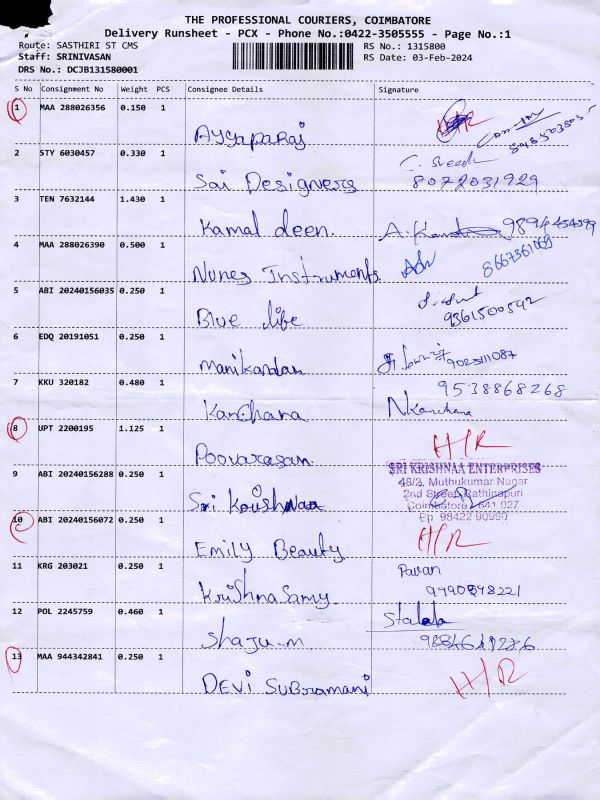 THE PROFESSIONAL COURIERS, COIMBATORE
Delivery Runsheet - PCX - Phone No.:0422-3505555 - Page No.:1
Route: SASTHIRI ST CMS
RS No.: 1315800
Staff: SRINIVASAN
RS Date: 03-Feb-2024
DRS No.: DCJB131580001
S No Consignment No Weight PCS Consignee Details Signature
1 MAA 288026356 0.150 1
Ayyaparaj H/R
2 STY 6030457 0.330 1
Sai Designers 8072031929
3 TEN 7632144 1.430 1
Kamal deen.
4 MAA 288026390 0.500 1
Nunes Instruments
5 ABI 20240156035 0.250 1
Blue life 9361500592
6 EDQ 20191051 0.250 1
manikandan
7 KKU 320182 0.480 1 9538868268
Kanchana NKanchana
8 UPT 2200195 1.125 1
Poovarasan. H/R
9 ABI 20240156288 0.250 1
SRI KRISHNAA ENTERPRISES
48/2, Muthukumar Nagar
2nd Street, Rathinapuri
Coimbatore - 641 027
Ph: 98422 90990
Sri
10 ABI 20240156072 0.250 1
Emily Beauty H/R
11 KRG 203021 0.250 1 Pavan
KrishnaSamy.
12 POL 2245759 0.460 1
Shaju.m
13 MAA 944342841 0.250 1
Devi Subramani H/R